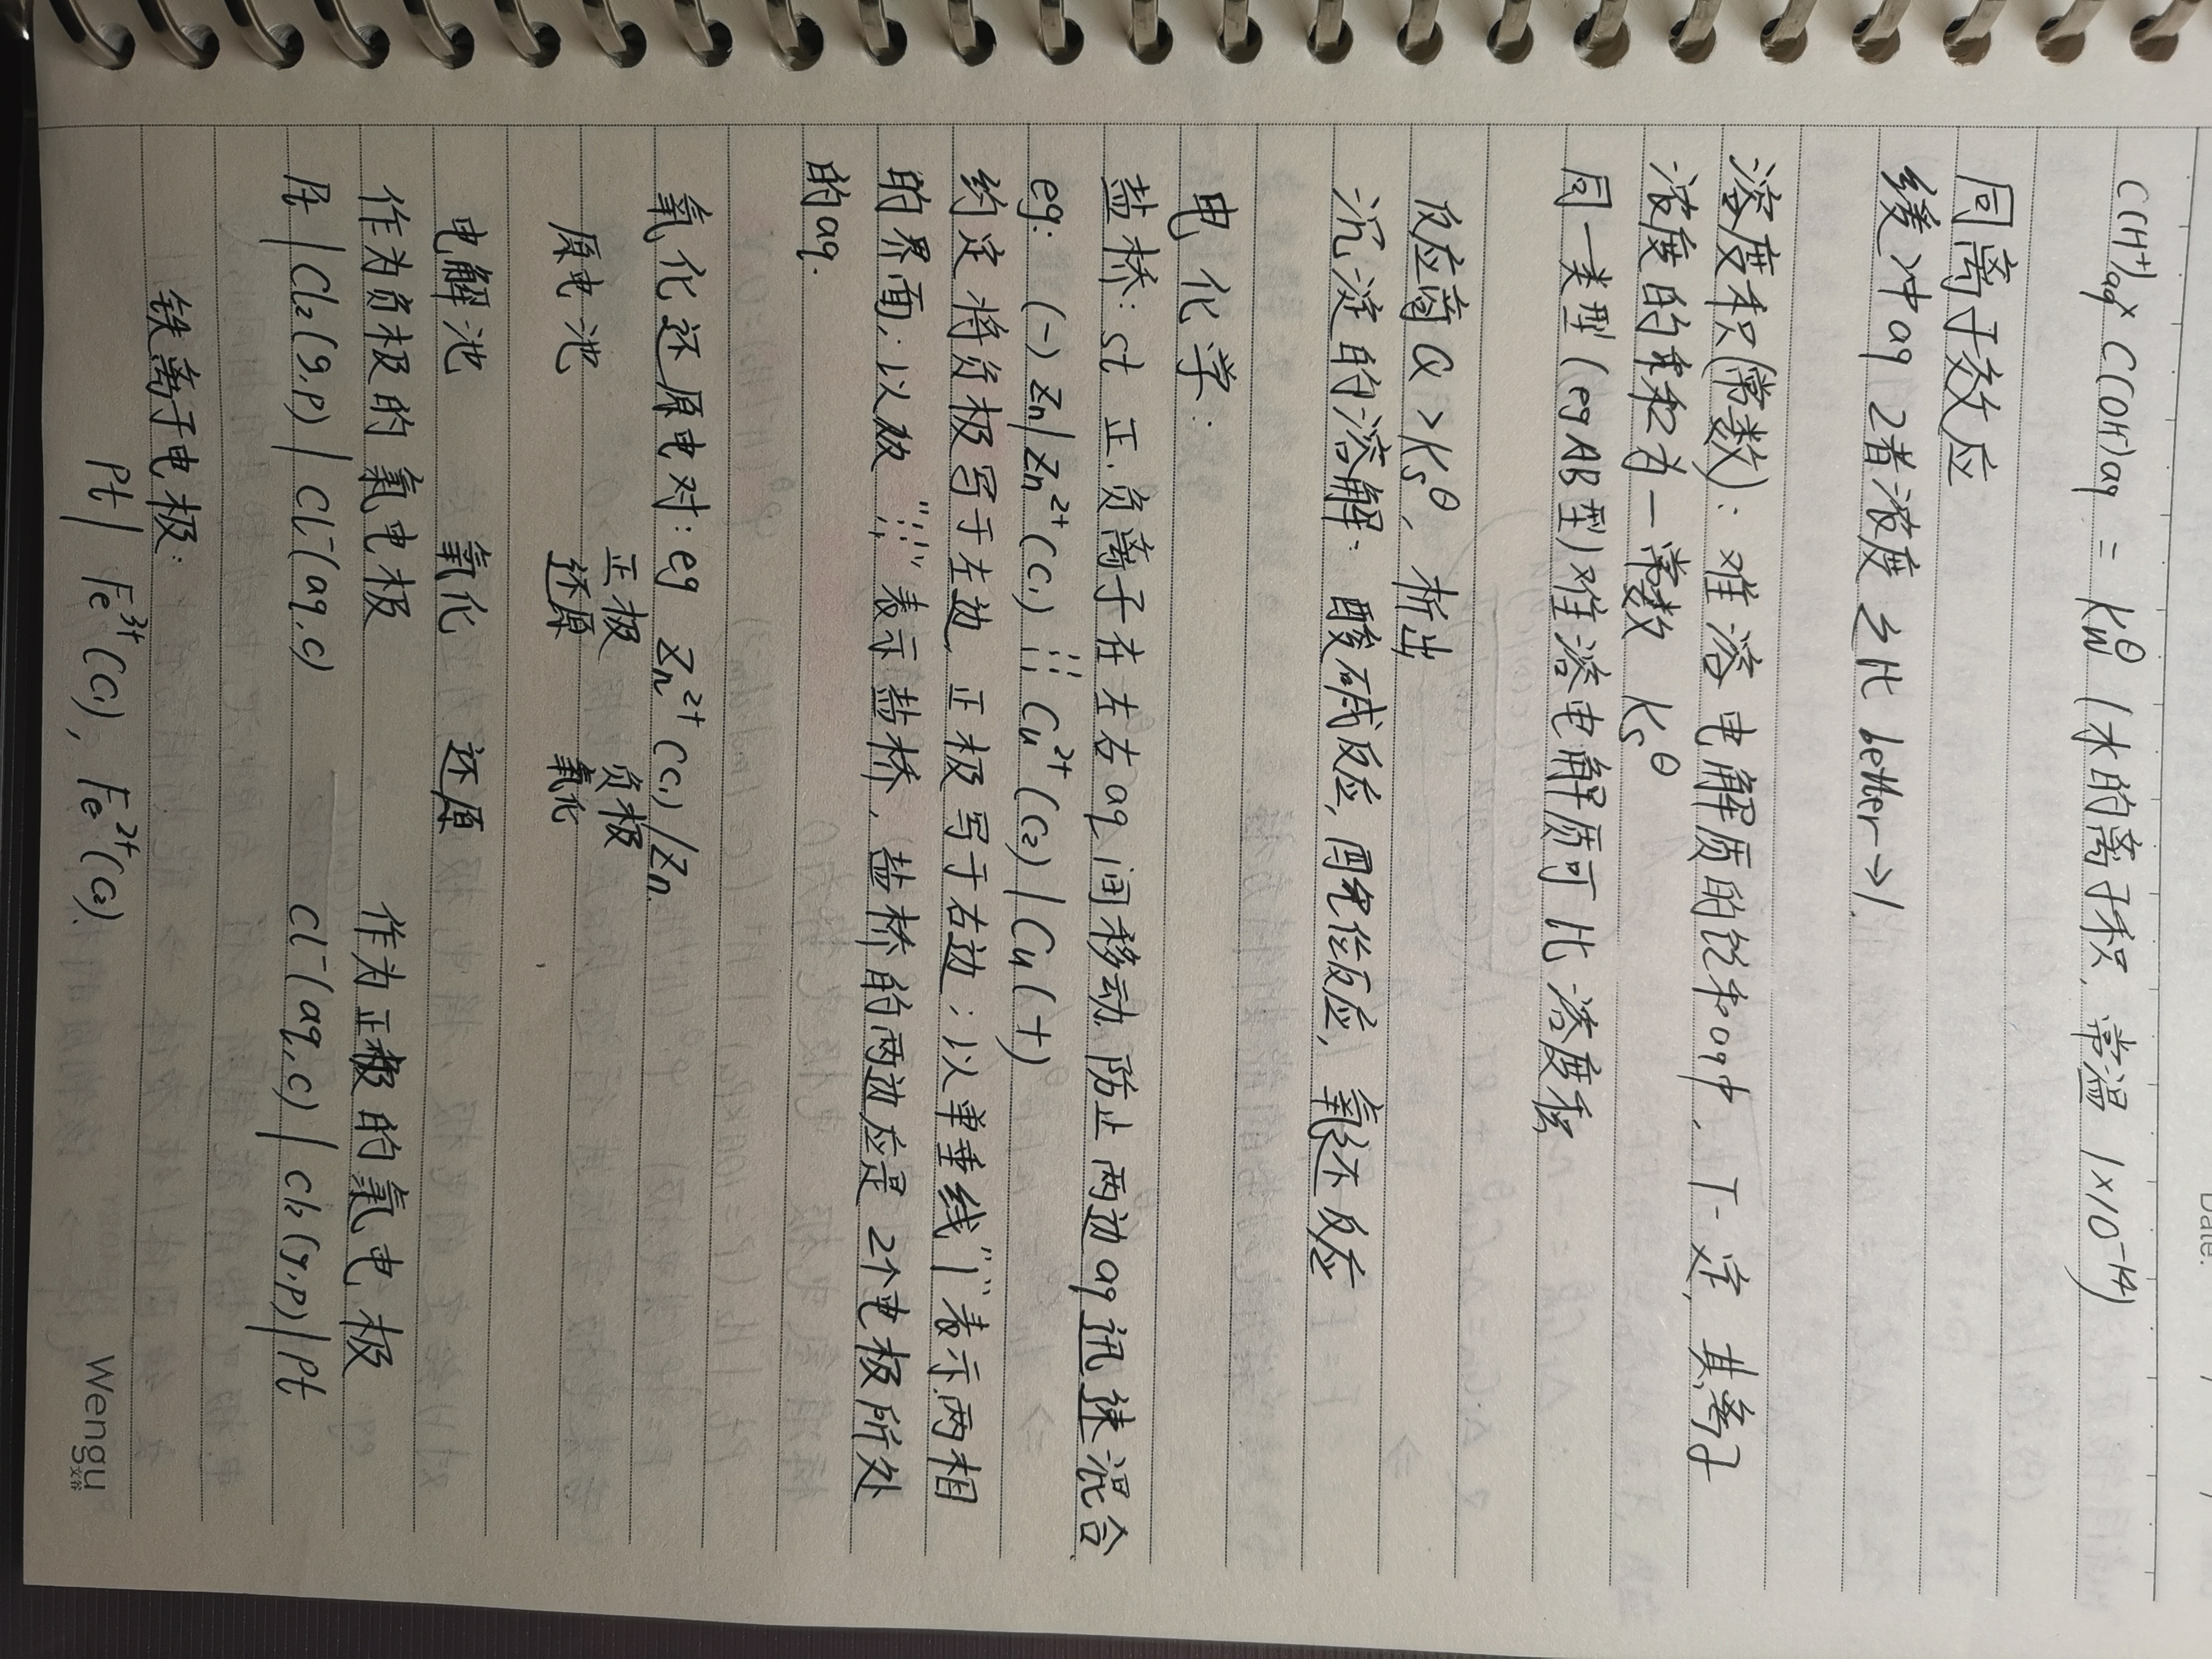 Date:
C(H⁺)aq × C(OH⁻)aq = Kw^θ (水的离子积, 常温 1×10⁻¹⁴)
同离子效应
缓冲aq 2者浓度之比 better→1.
溶度积(常数): 难溶电解质的饱和aq中, T一定, 其离子
浓度的乘积为一常数 Ks^θ
同一类型(eg AB型)难溶电解质可比溶度积
反应商 Q > Ks^θ, 析出
沉淀的溶解: 酸碱反应, 配位反应, 氧还反应
电化学:
盐桥: st 正、负离子在左右aq间移动, 防止两边aq迅速混合
eg: (-) Zn | Zn²⁺(C₁) ┊┊ Cu²⁺(C₂) | Cu (+)
约定将负极写于左边, 正极写于右边; 以单垂线"|"表示两相
的界面; 以双"┊┊"表示盐桥, 盐桥的两边应是2个电极所处
的aq.
氧化还原电对: eg Zn²⁺(C₁)/Zn.
正极 负极
原电池 还原 氧化
电解池 氧化 还原
作为负极的氯电极 作为正极的氯电极
Pt | Cl₂(g,p) | Cl⁻(aq,c) Cl⁻(aq,c) | Cl₂(g,p) | Pt
铁离子电极:
Pt | Fe³⁺(C₁), Fe²⁺(C₂).
Wengu
文谷